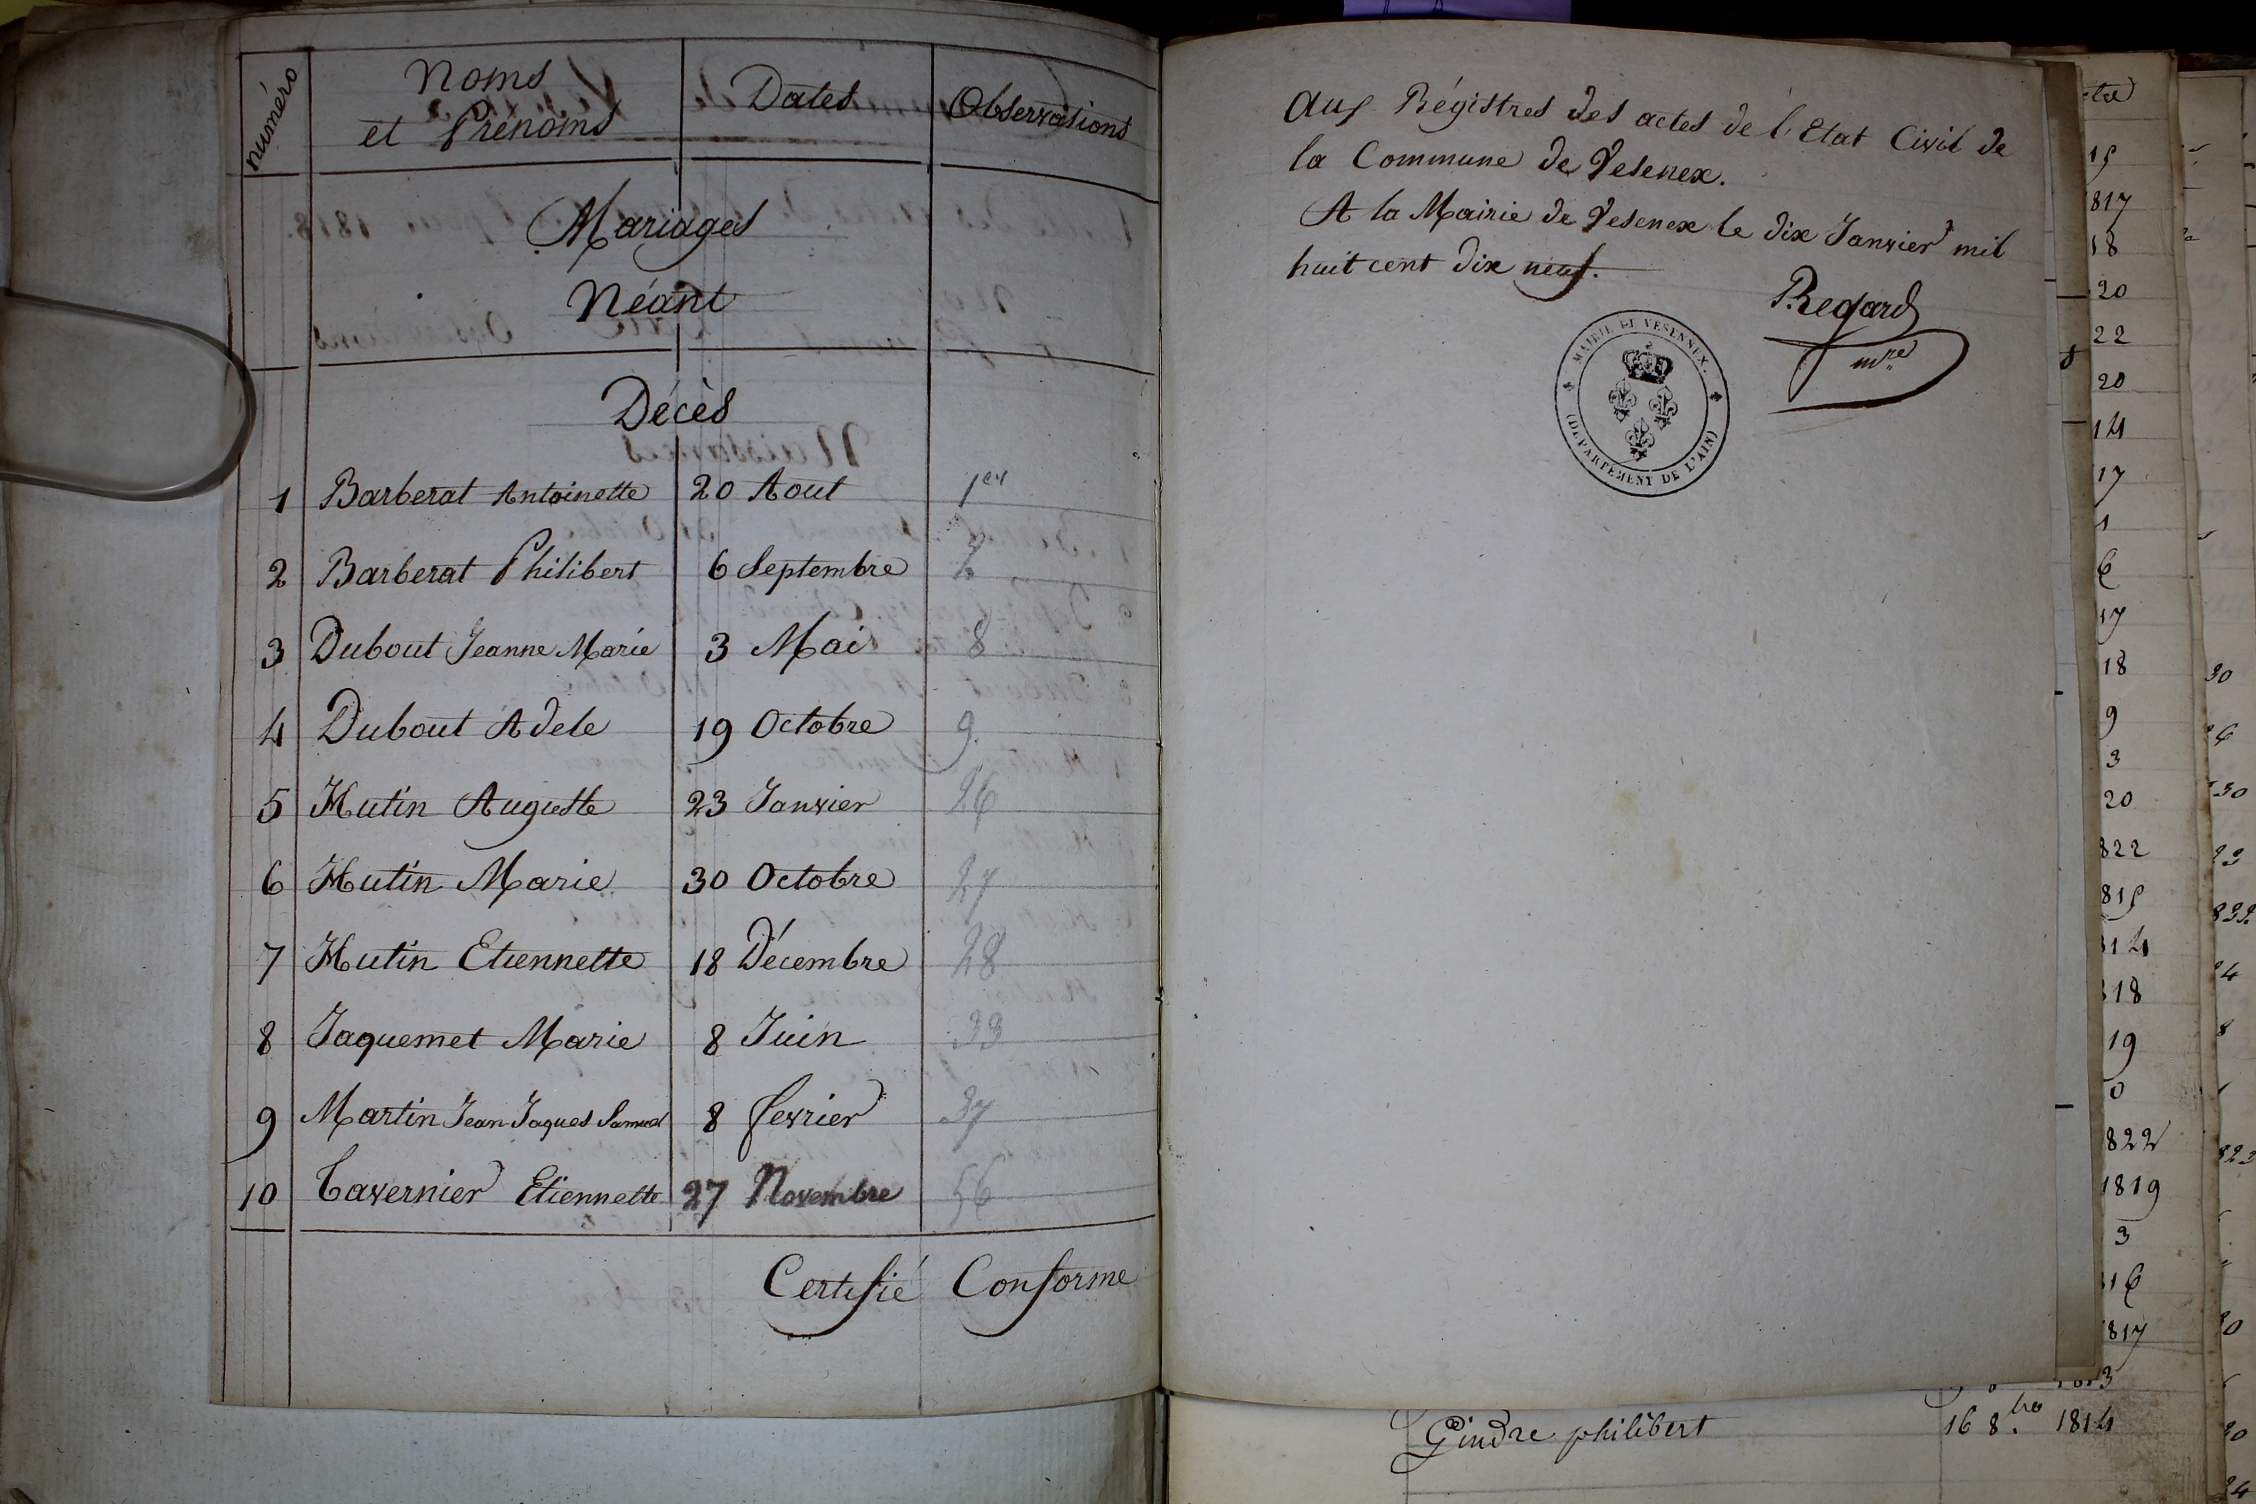 numéro
Noms et Prénoms
Dates
Observations
Mariages
Néant
Décès
1 Barberat Antoinette 20 Aout 1er
2 Barberat Philibert 6 Septembre 2
3 Dubout Jeanne Marie 3 Mai 8
4 Dubout Adele 19 Octobre 9.
5 Hutin Auguste 23 Janvier 26
6 Hutin Marie 30 Octobre 27
7 Hutin Etiennette 18 Décembre 28
8 Jaquemet Marie 8 Juin 33
9 Martin Jean Jaques Samuel 8 fevrier 37
10 Tavernier Etiennette 27 Novembre 56
Certifié Conforme
aux Régistres des actes de l'Etat Civil de
la Commune de Vesenex.
A la Mairie de Vesenex le dix Janvier mil
huit cent dix neuf.
Regard
mre
MAIRIE DE VESENNEX.
(DEPARTEMENT DE L'AIN)
817
18
20
22
20
14
17
1
6
17
18
9
3
20
822
815
14
18
19
0
822
1819
3
16
817
Gindre philibert 16 8.bre 1814